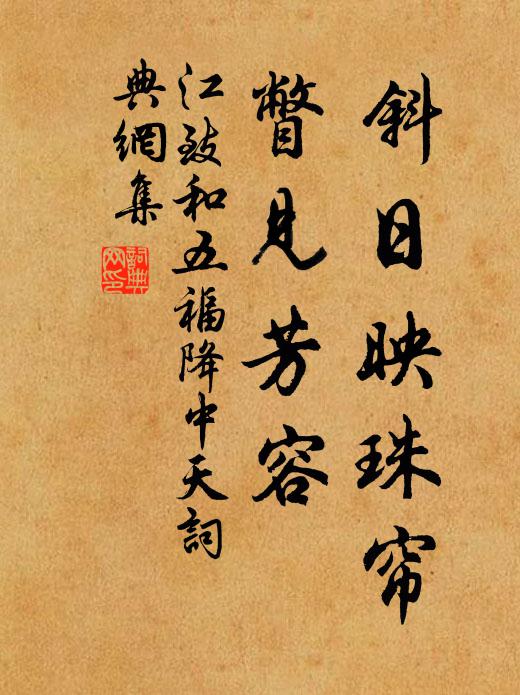 斜日映珠帘
瞥见芳容
江致和五福降中天詞
典網集
詞典网印